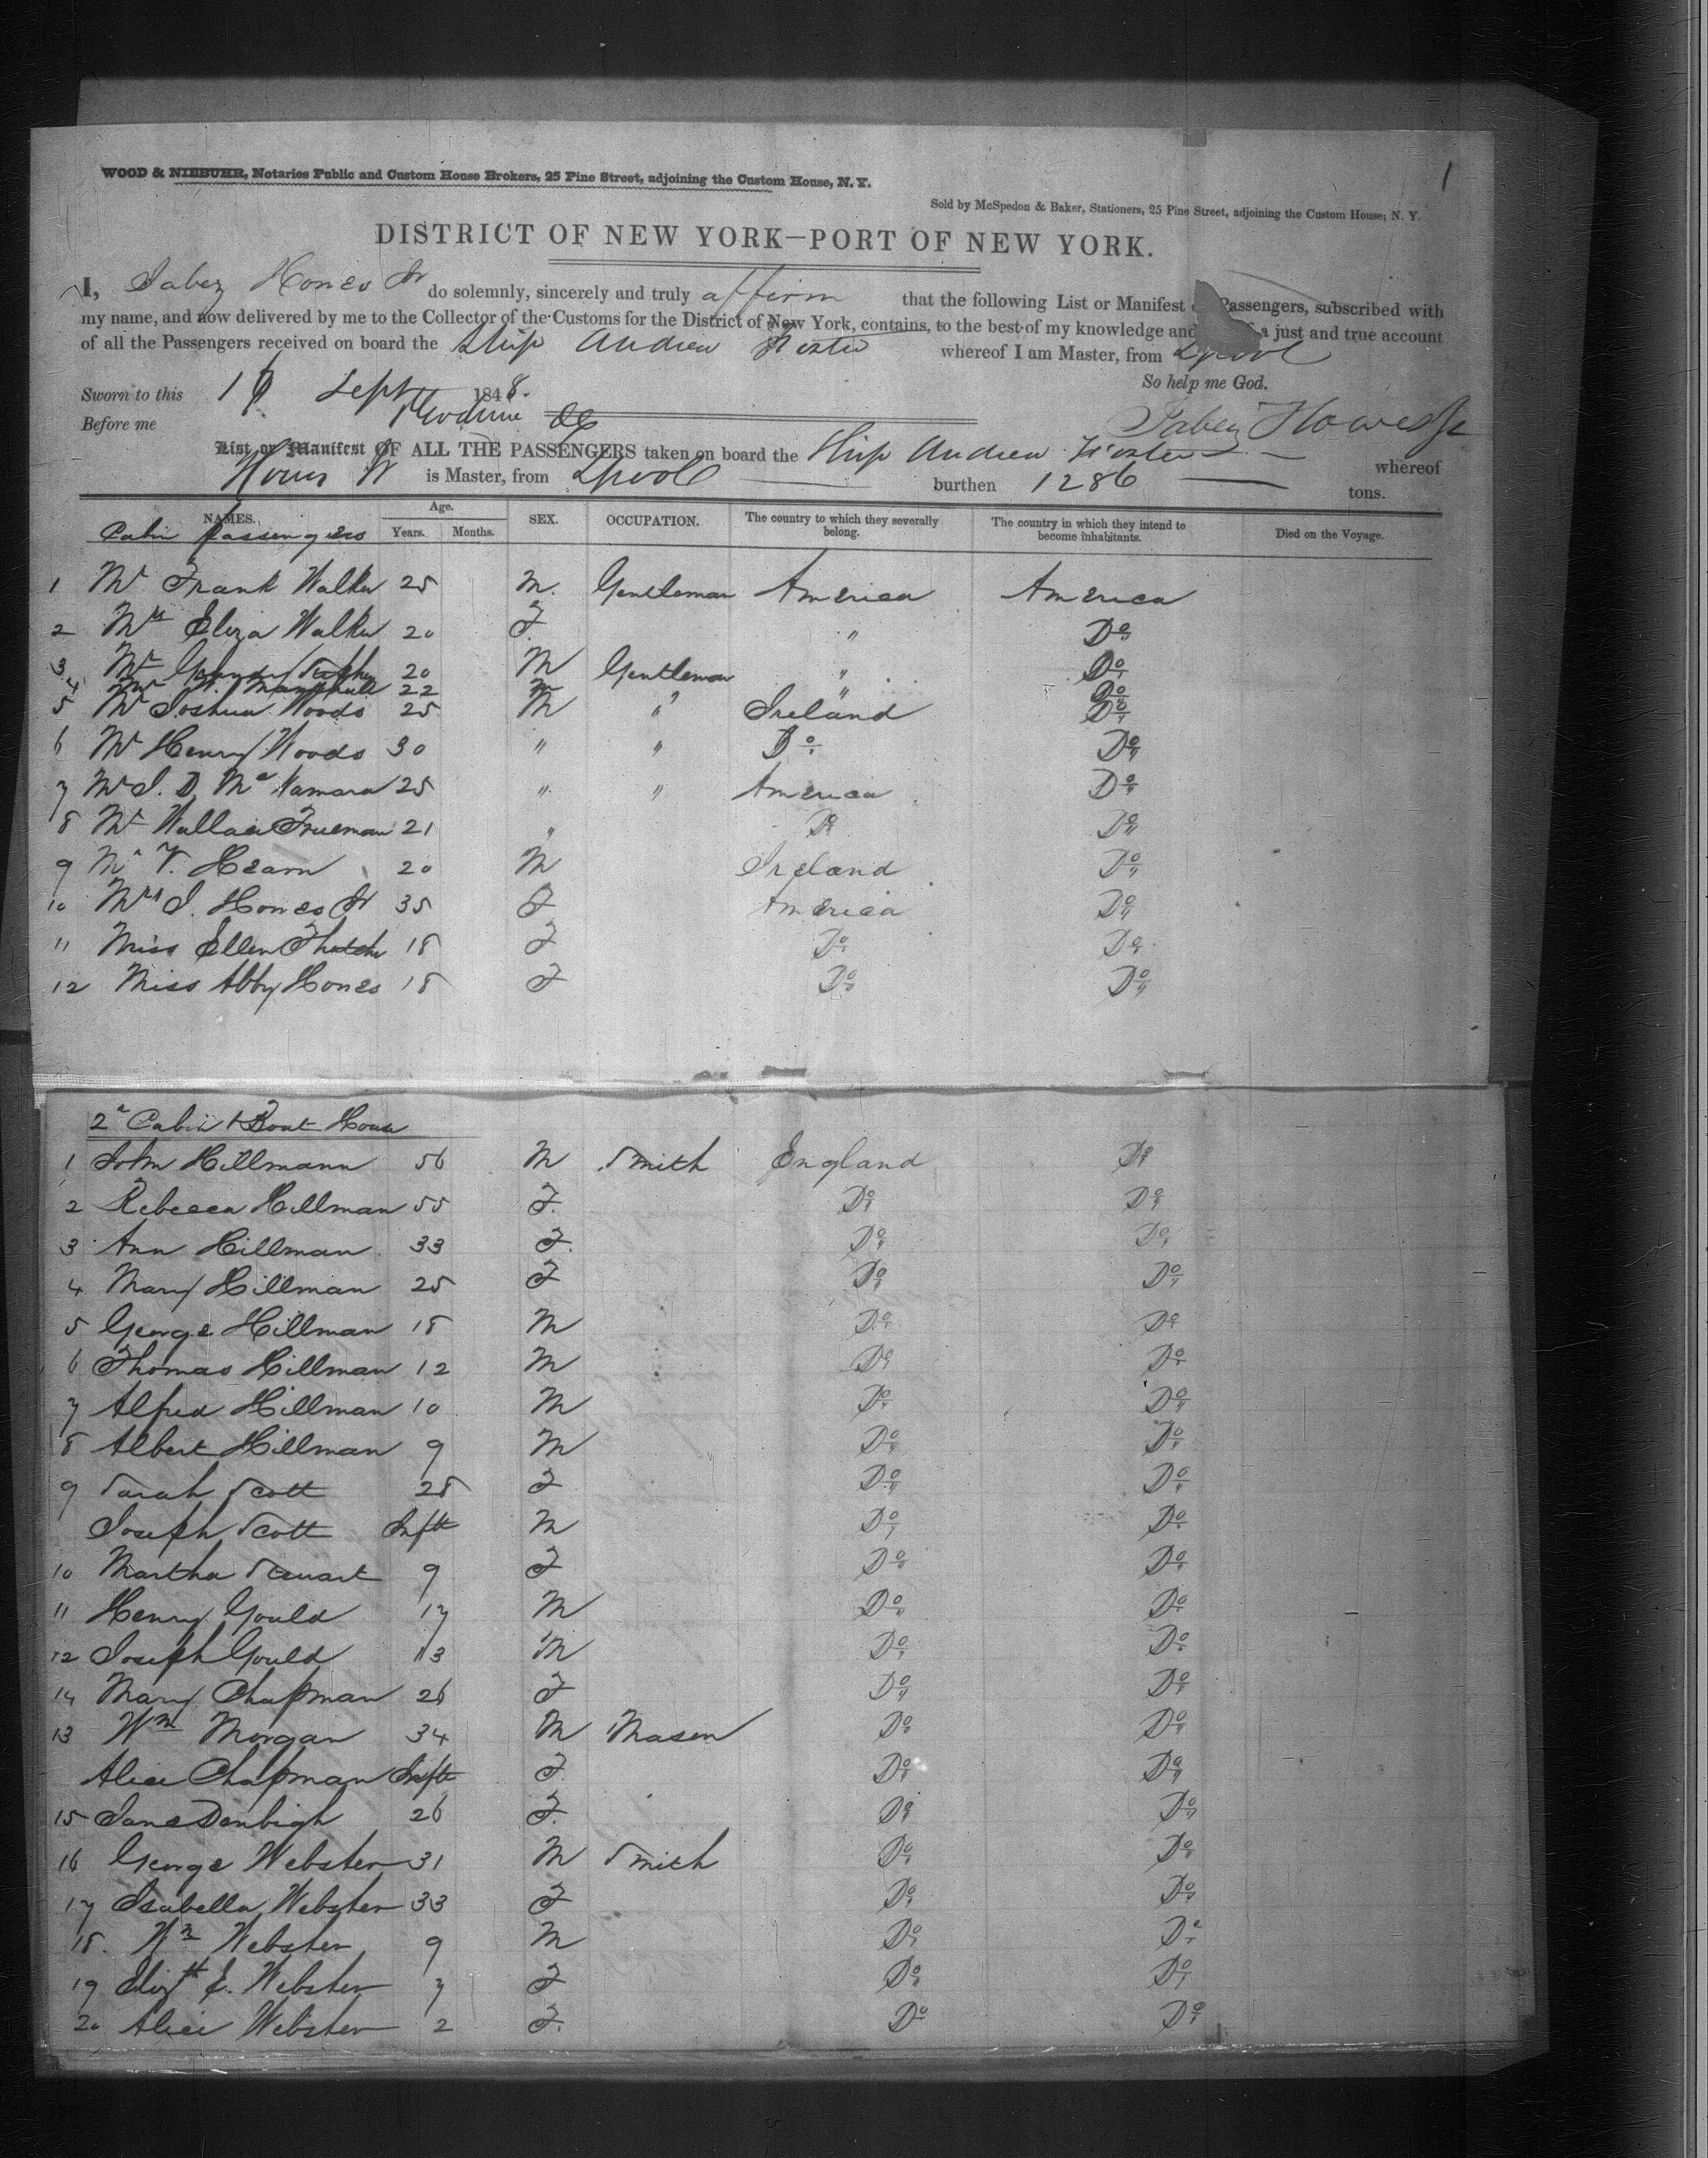 1
WOOD & NIEBUHR, Notaries Public and Custom House Brokers, 25 Pine Street, adjoining the Custom House, N. Y.
Sold by McSpedon & Baker, Stationers, 25 Pine Street, adjoining the Custom House; N. Y.
DISTRICT OF NEW YORK—PORT OF NEW YORK.
I, Jabez Howes Jr do solemnly, sincerely and truly affirm that the following List or Manifest Passengers, subscribed with
my name, and now delivered by me to the Collector of the Customs for the District of New York, contains, to the best of my knowledge and a just and true account
of all the Passengers received on board the Ship Andrew Foster whereof I am Master, from Lpool
So help me God.
Sworn to this Sept 1848.
Before me
Jabez Howes Jr
List or Manifest OF ALL THE PASSENGERS taken on board the Ship Andrew Foster whereof
Howes Jr is Master, from Lpool burthen 1286 tons.
NAMES. Age. Years. Months. SEX. OCCUPATION. The country to which they severally belong. The country in which they intend to become inhabitants. Died on the Voyage.
Cabin Passengers
1 Mr Frank Walker 25 M. Gentleman America America
2 Mrs Eliza Walker 20 F. " Do
3 Mr 20 M Gentleman " Do
4 Mr 22 M " " Do
5 Mr Joshua Woods 25 M " Ireland Do
6 Mr Henry Woods 30 " " Do Do
7 Mr J. D. McNamara 25 " " America Do
8 Mr Wallace Trueman 21 " Do Do
9 Mr V. Hearn 20 M Ireland Do
10 Mrs J. Howes Jr 35 F America Do
11 Miss Ellen Thatcher 18 F Do Do
12 Miss Abby Howes 18 F Do Do
2d Cabin & Bout House
1 John Hillmann 56 M Smith England Do
2 Rebecca Hillman 55 F. Do Do
3 Ann Hillman 33 F. Do Do
4 Mary Hillman 25 F Do Do
5 George Hillman 18 M Do Do
6 Thomas Hillman 12 M Do Do
7 Alfred Hillman 10 M Do Do
8 Albert Hillman 9 M Do Do
9 Sarah Scott 28 F Do Do
Joseph Scott Inft M Do Do
10 Martha Stewart 9 F Do Do
11 Henry Gould 17 M Do Do
12 Joseph Gould 13 M Do Do
14 Mary Chapman 26 F Do Do
13 Wm Morgan 34 M Mason Do Do
Alice Chapman Inft F. Do Do
15 Jane Denbigh 26 F. Do Do
16 George Webster 31 M Smith Do Do
17 Isabella Webster 33 F Do Do
18. Wm Webster 9 M Do Do
19 Elizth E. Webster 7 F Do Do
20 Alice Webster 2 F. Do Do